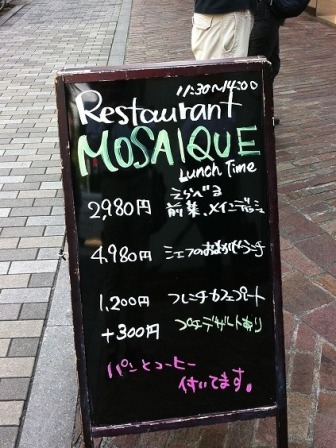 11:30~14:00
Restaurant
MOSAIQUE
Lunch Time
えらべる
2,980円 前菜、メインディッシュ
4,980円 シェフのおまかせランチ
1,200円 フレンチカフェプレート
+300円 プチデザートあり
パンとコーヒー
付いてます。